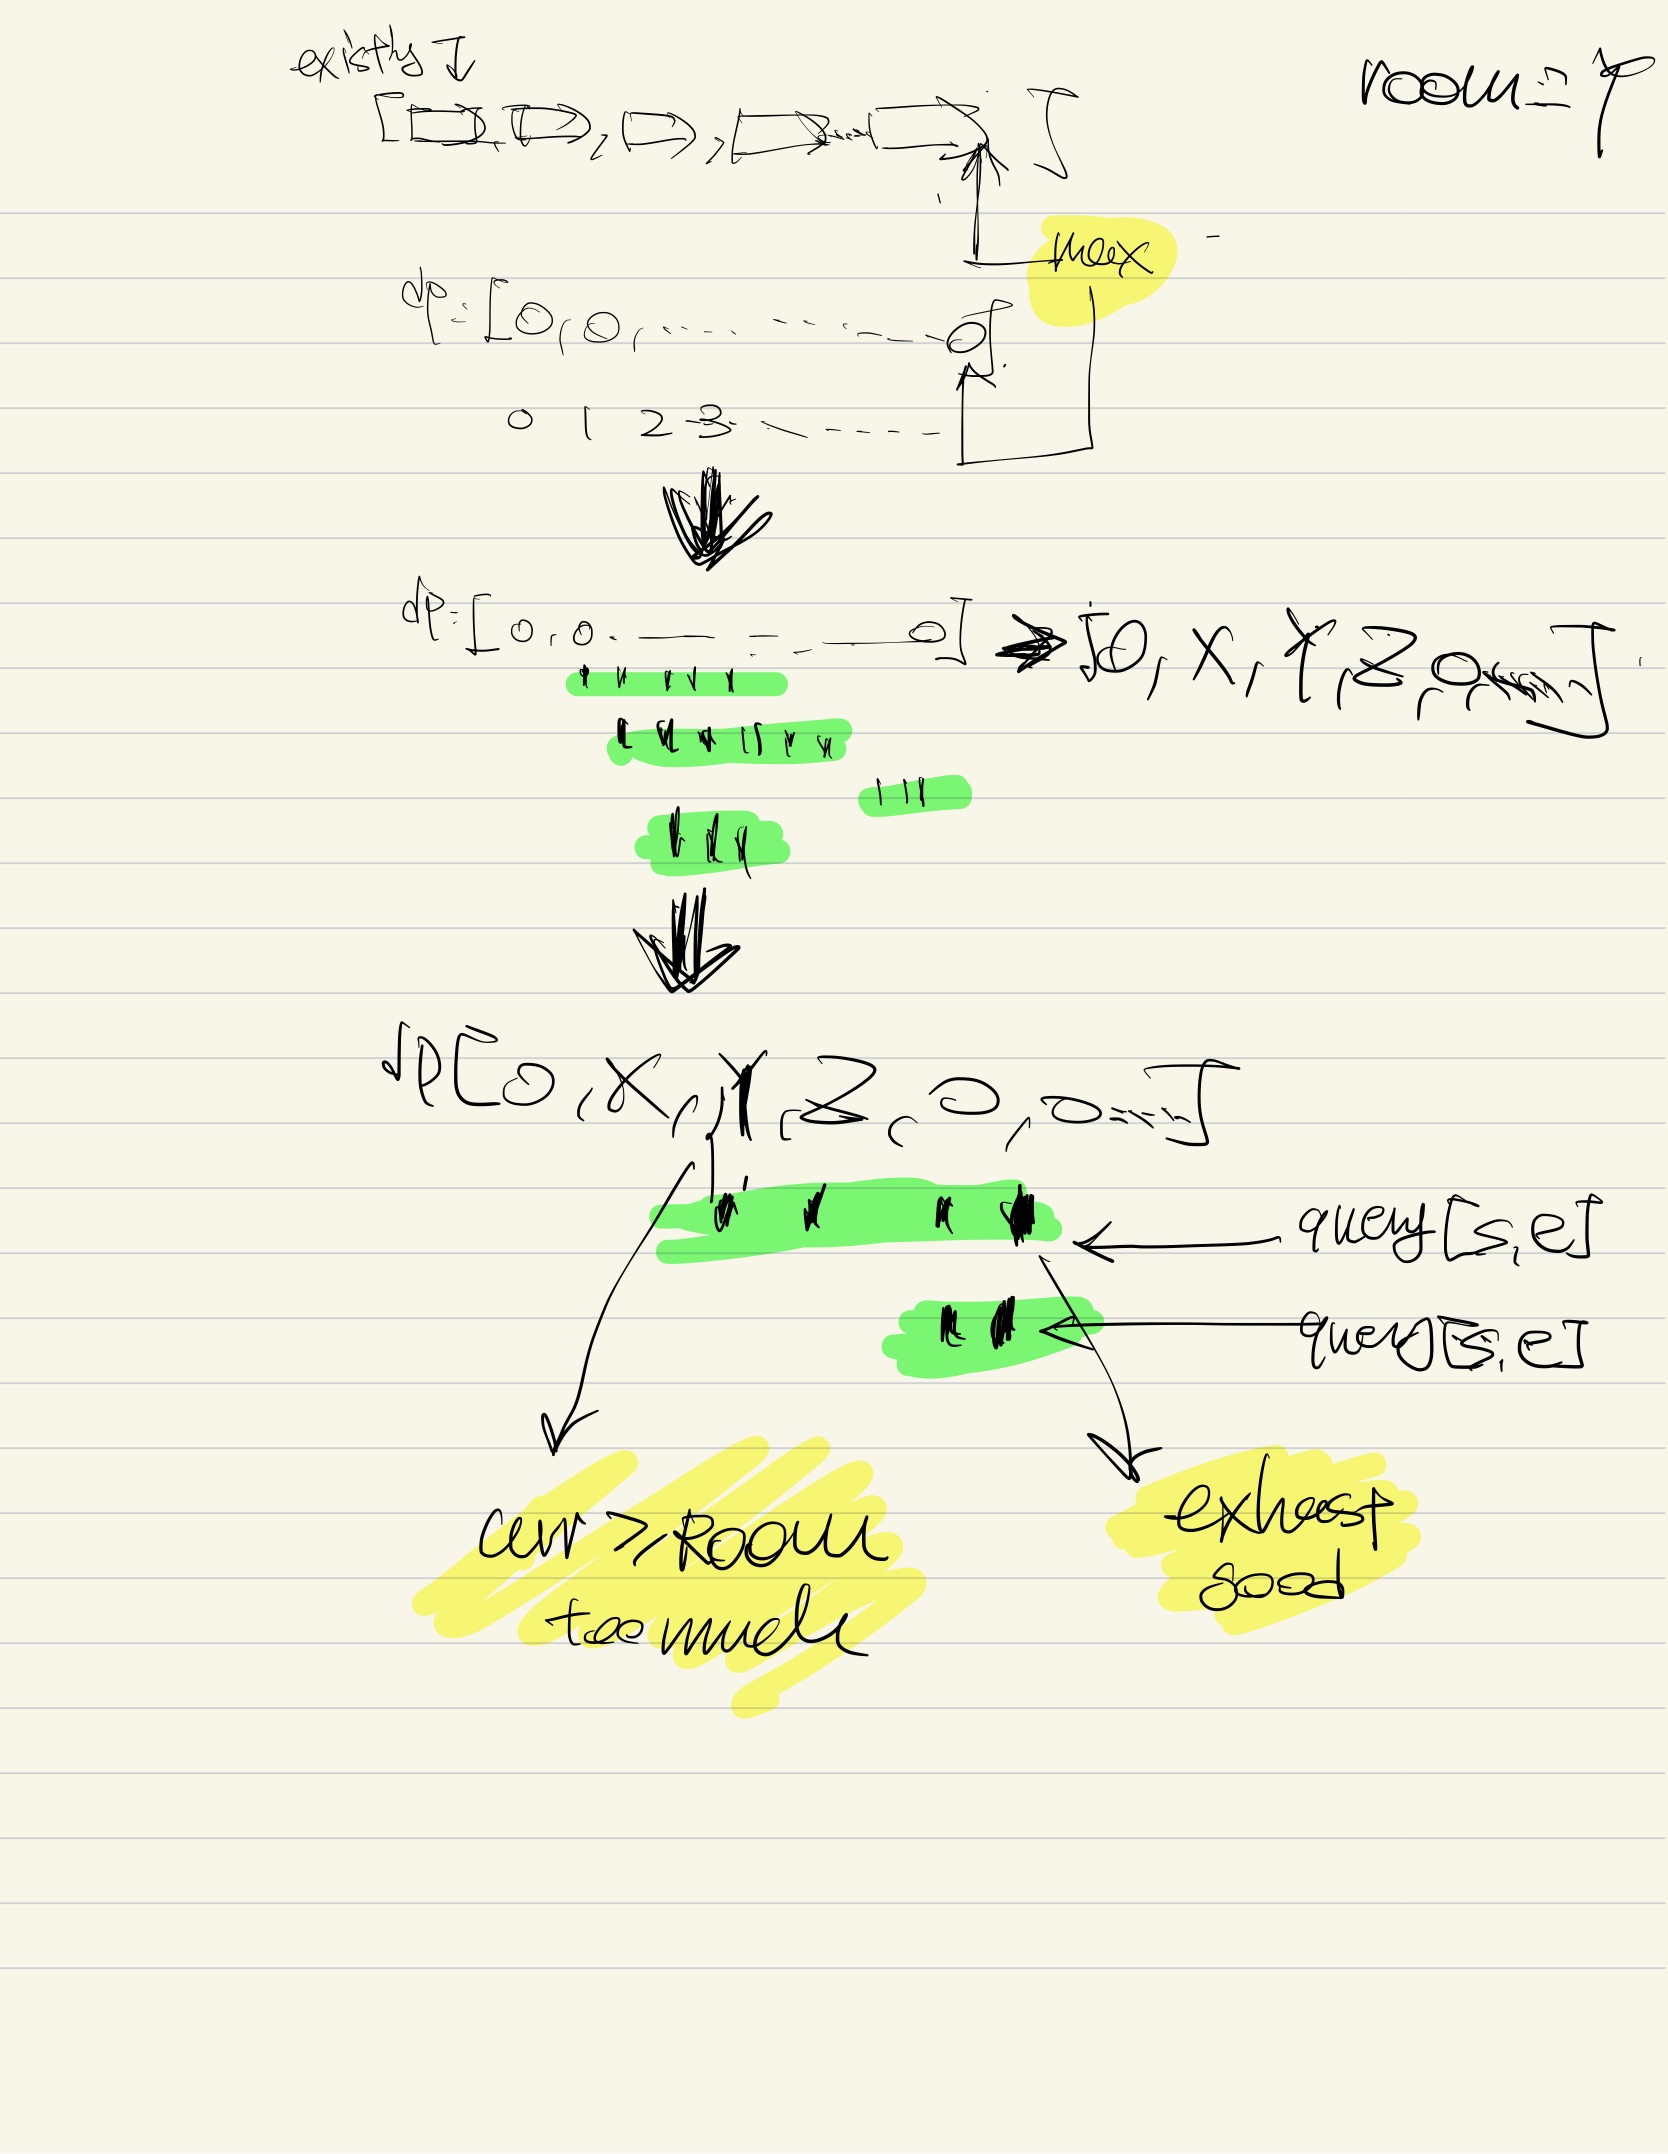 room = 7
[ , , , ---- ]
max
dp = [0, 0, ---- 0]
0 1 2 3 ----
dp = [0, 0. ---- 0] [0, X, Y, Z, 0, ---]
dp[0, X, Y, Z, 0, 0---]
query[s, e]
query[s, e]
curr >= Room
too much
exhaust
good